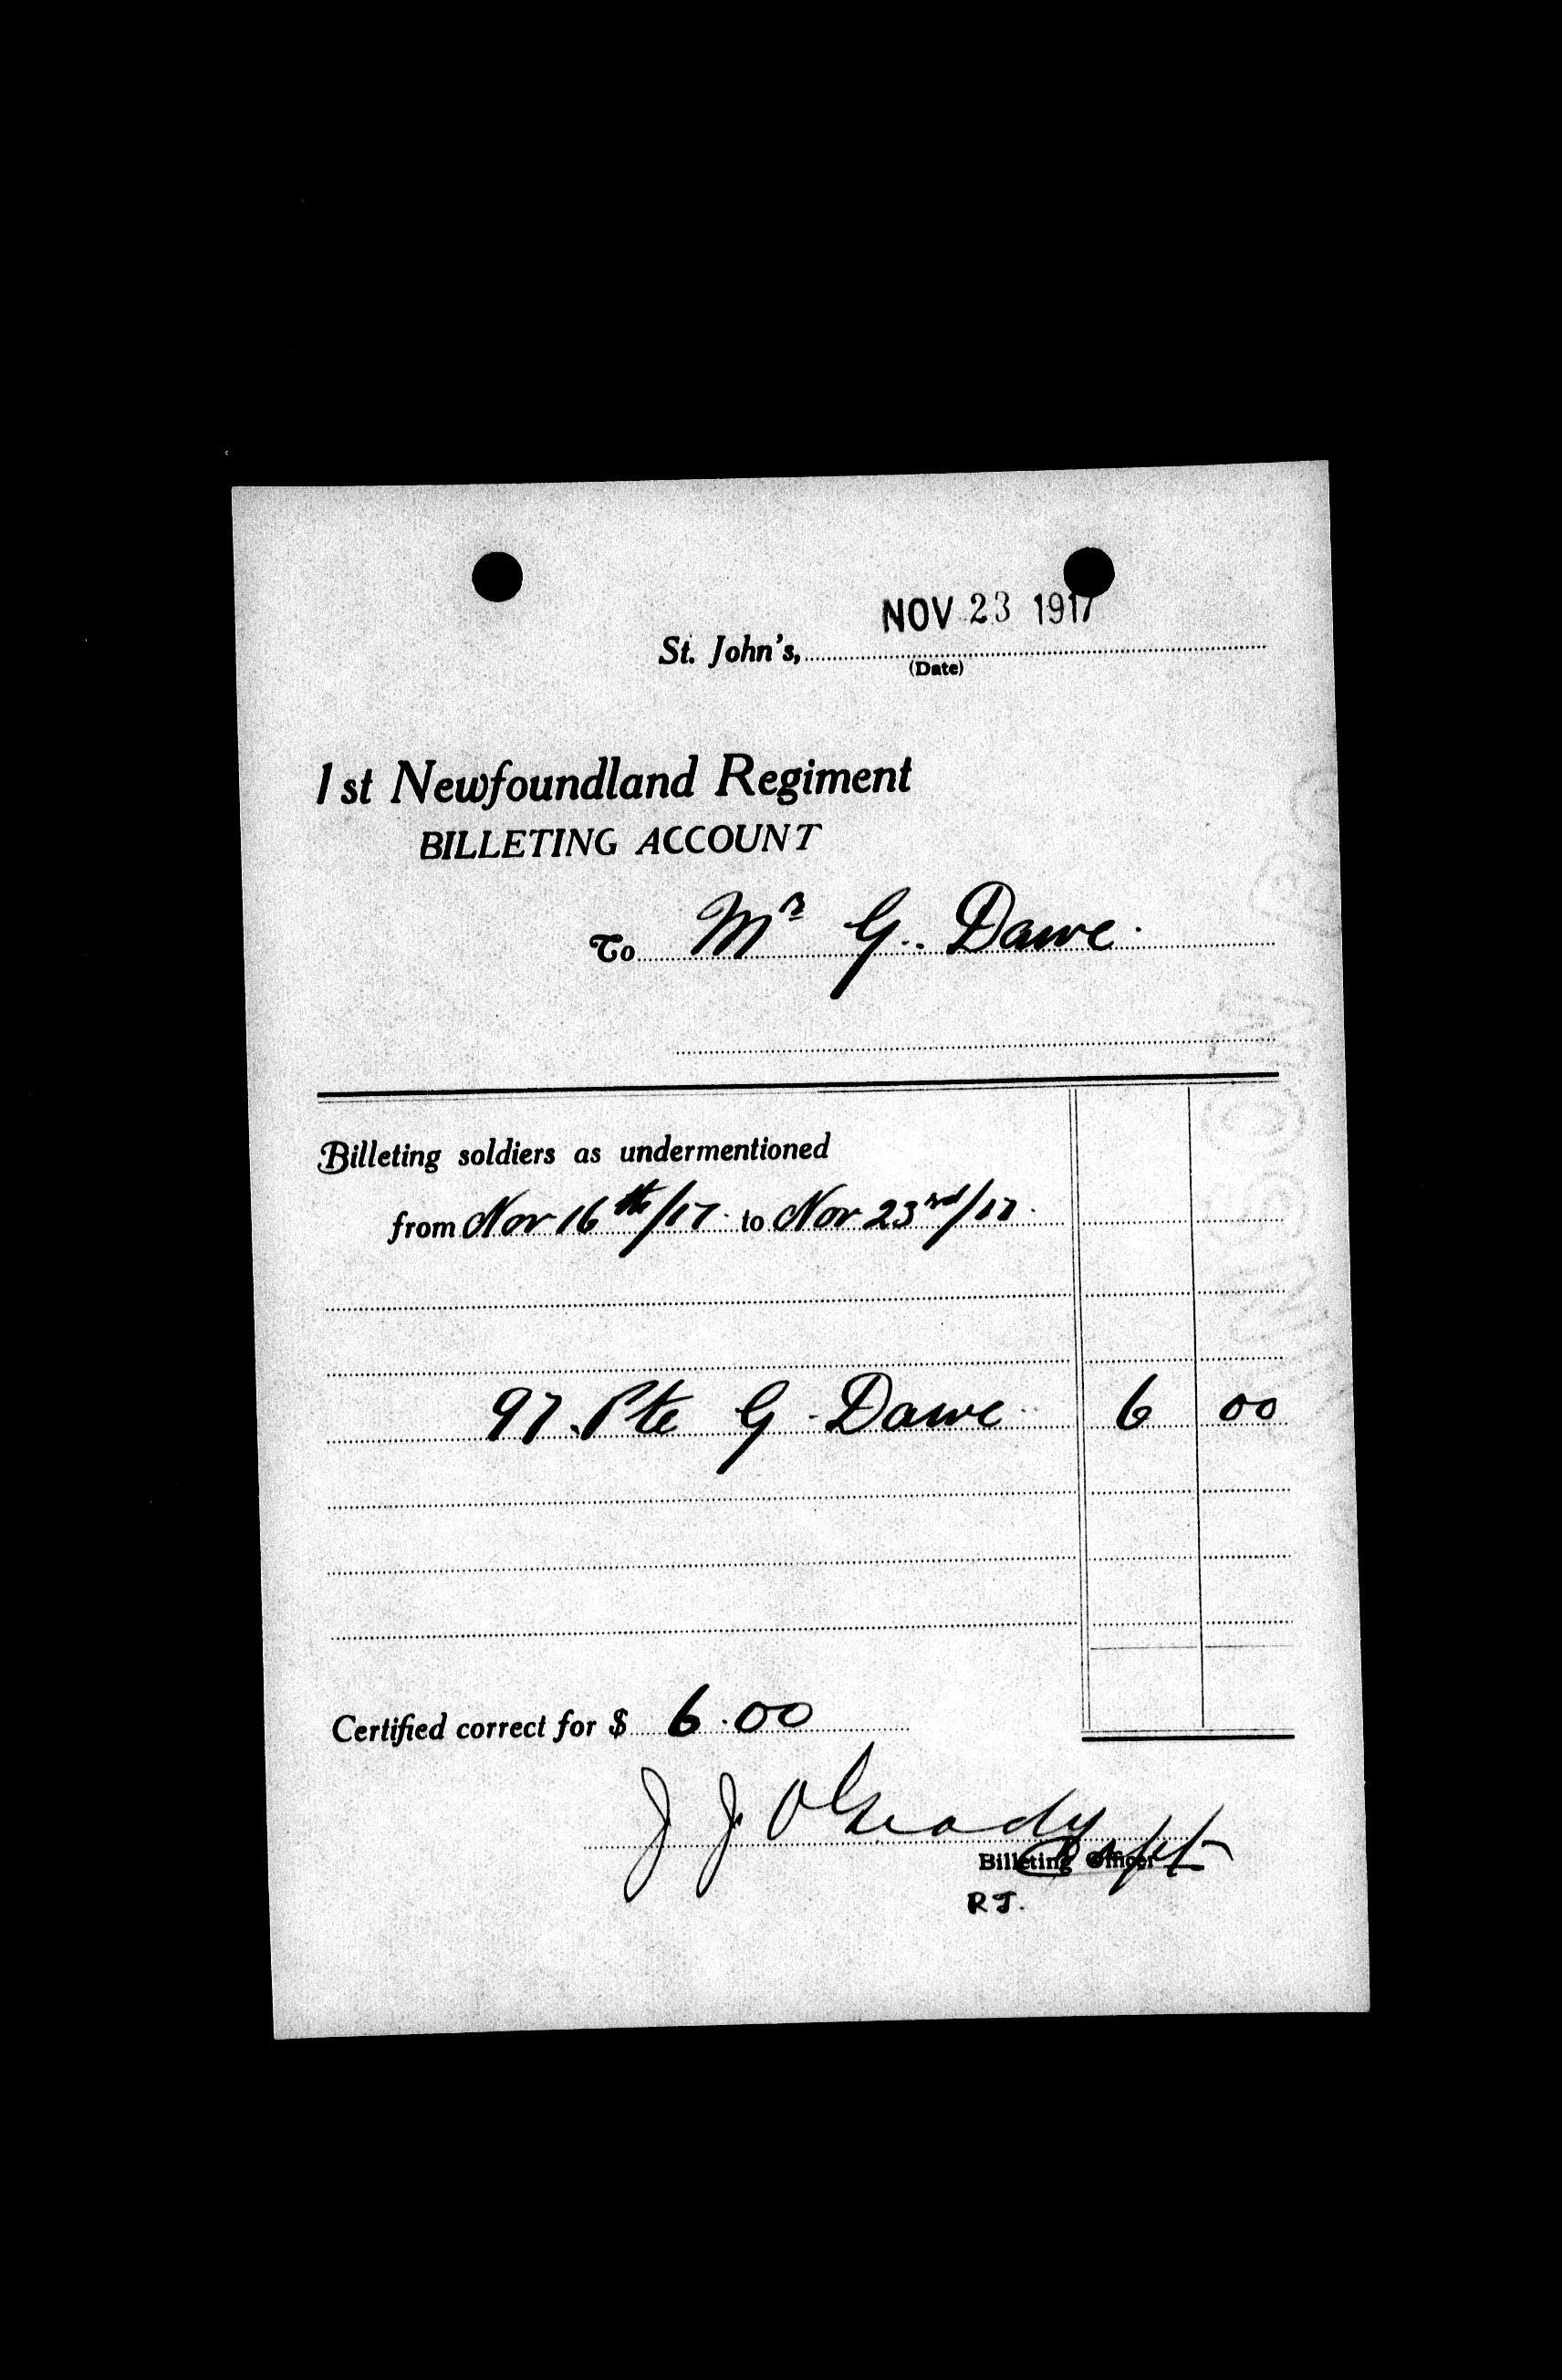 NOV 23 1917
St. John's,
(Date)
1st Newfoundland Regiment
BILLETING ACCOUNT
To Mrs G. Dawe.
Billeting soldiers as undermentioned
from Nov 16th/17. to Nov 23rd/17.
97. Pte G. Dawe 6 00
Certified correct for $ 6.00
J J O'Grady
Capt
Billeting Officer
RJ.